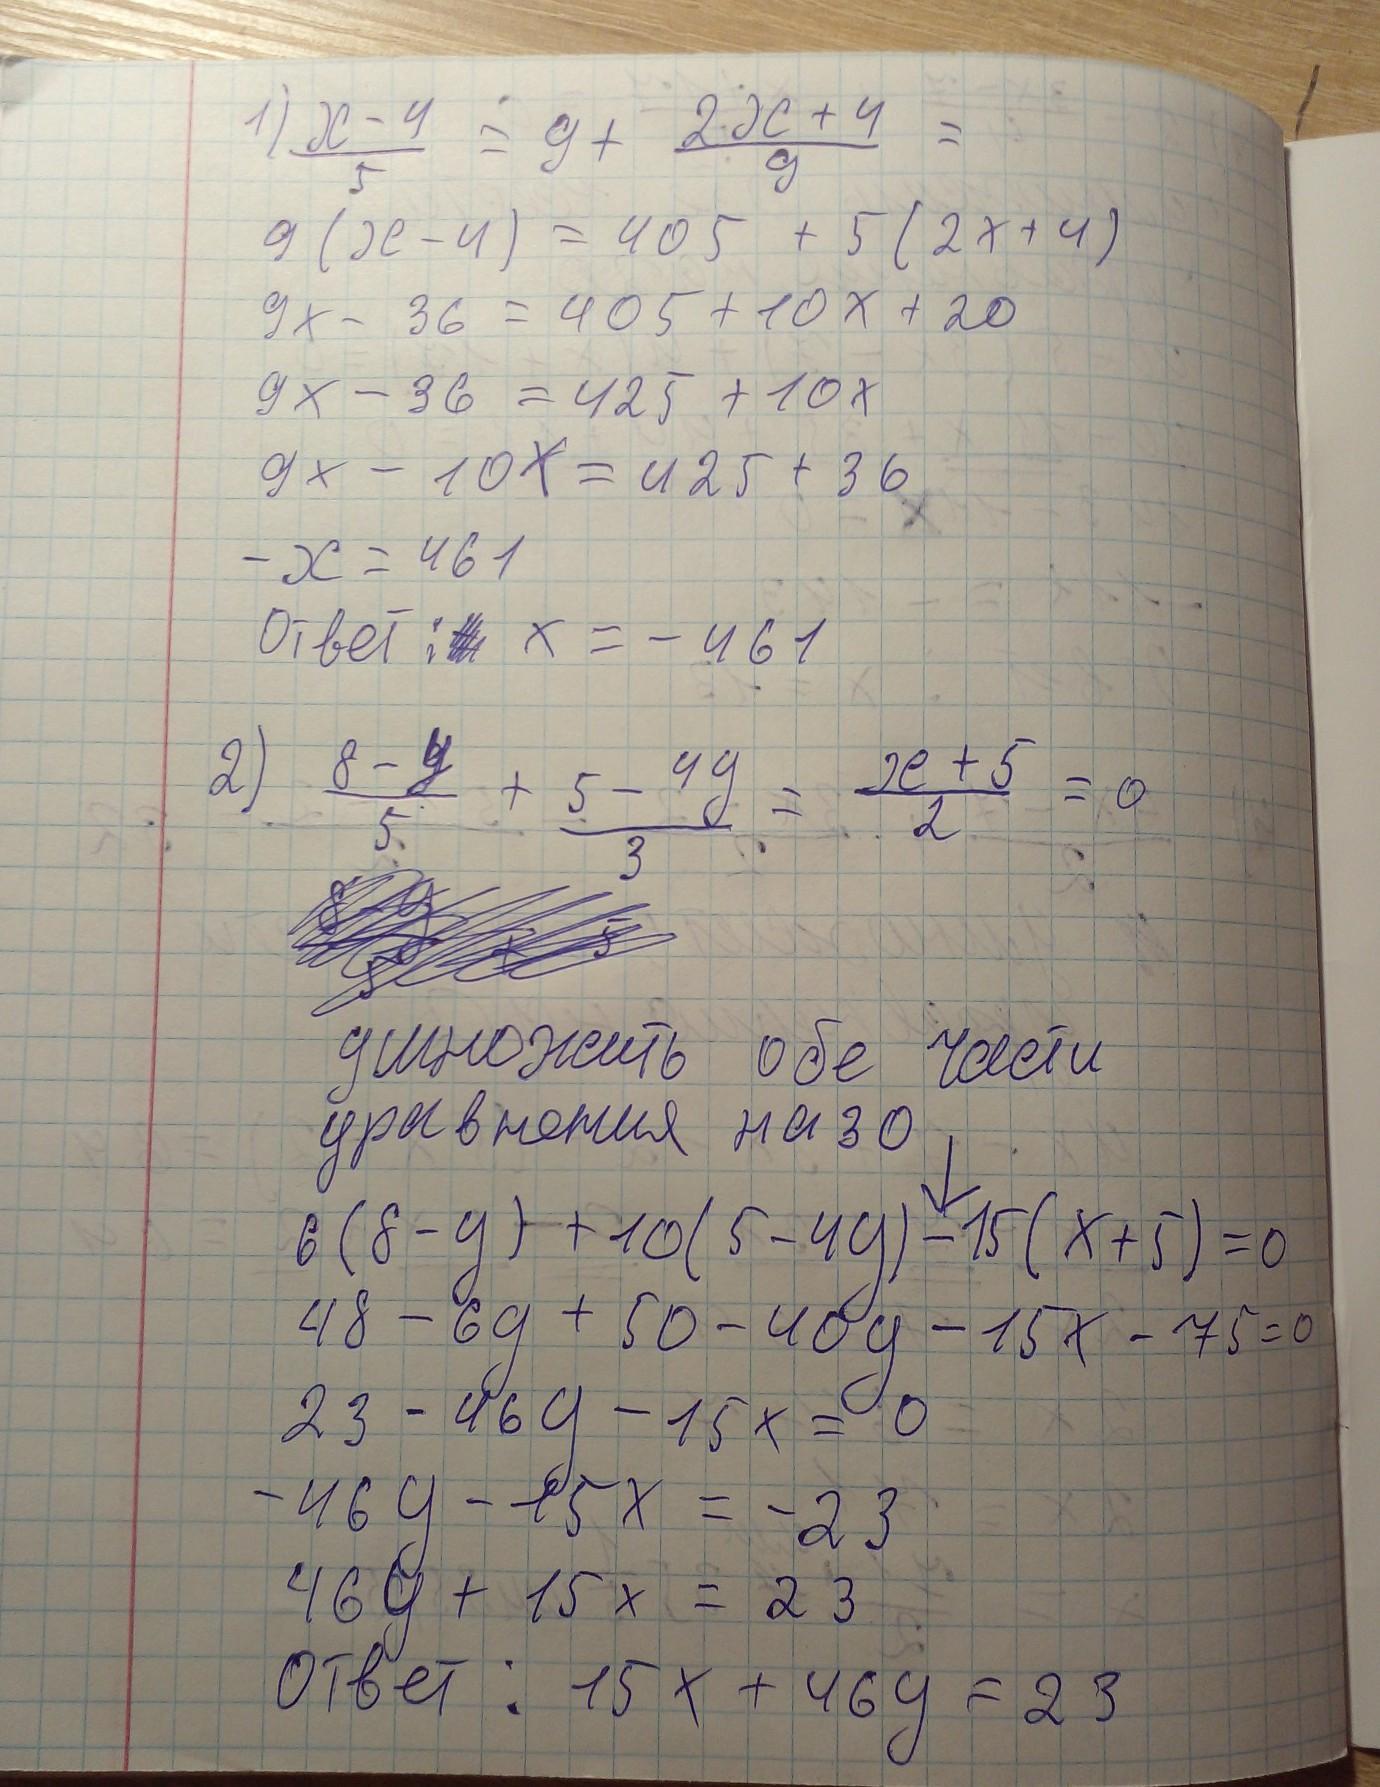 1) x-4/5 = 9 + 2x+4/9 =
9(x-4) = 405 + 5(2x+4)
9x - 36 = 405 + 10x + 20
9x - 36 = 425 + 10x
9x - 10x = 425 + 36
-x = 461
Ответ: x = -461
2) 8-y/5 + 5-4y/3 = x+5/2 = 0
умножить обе части
уравнения на 30
6(8-y) + 10(5-4y) - 15(x+5) = 0
48 - 6y + 50 - 40y - 15x - 75 = 0
23 - 46y - 15x = 0
-46y - 15x = -23
46y + 15x = 23
Ответ: 15x + 46y = 23